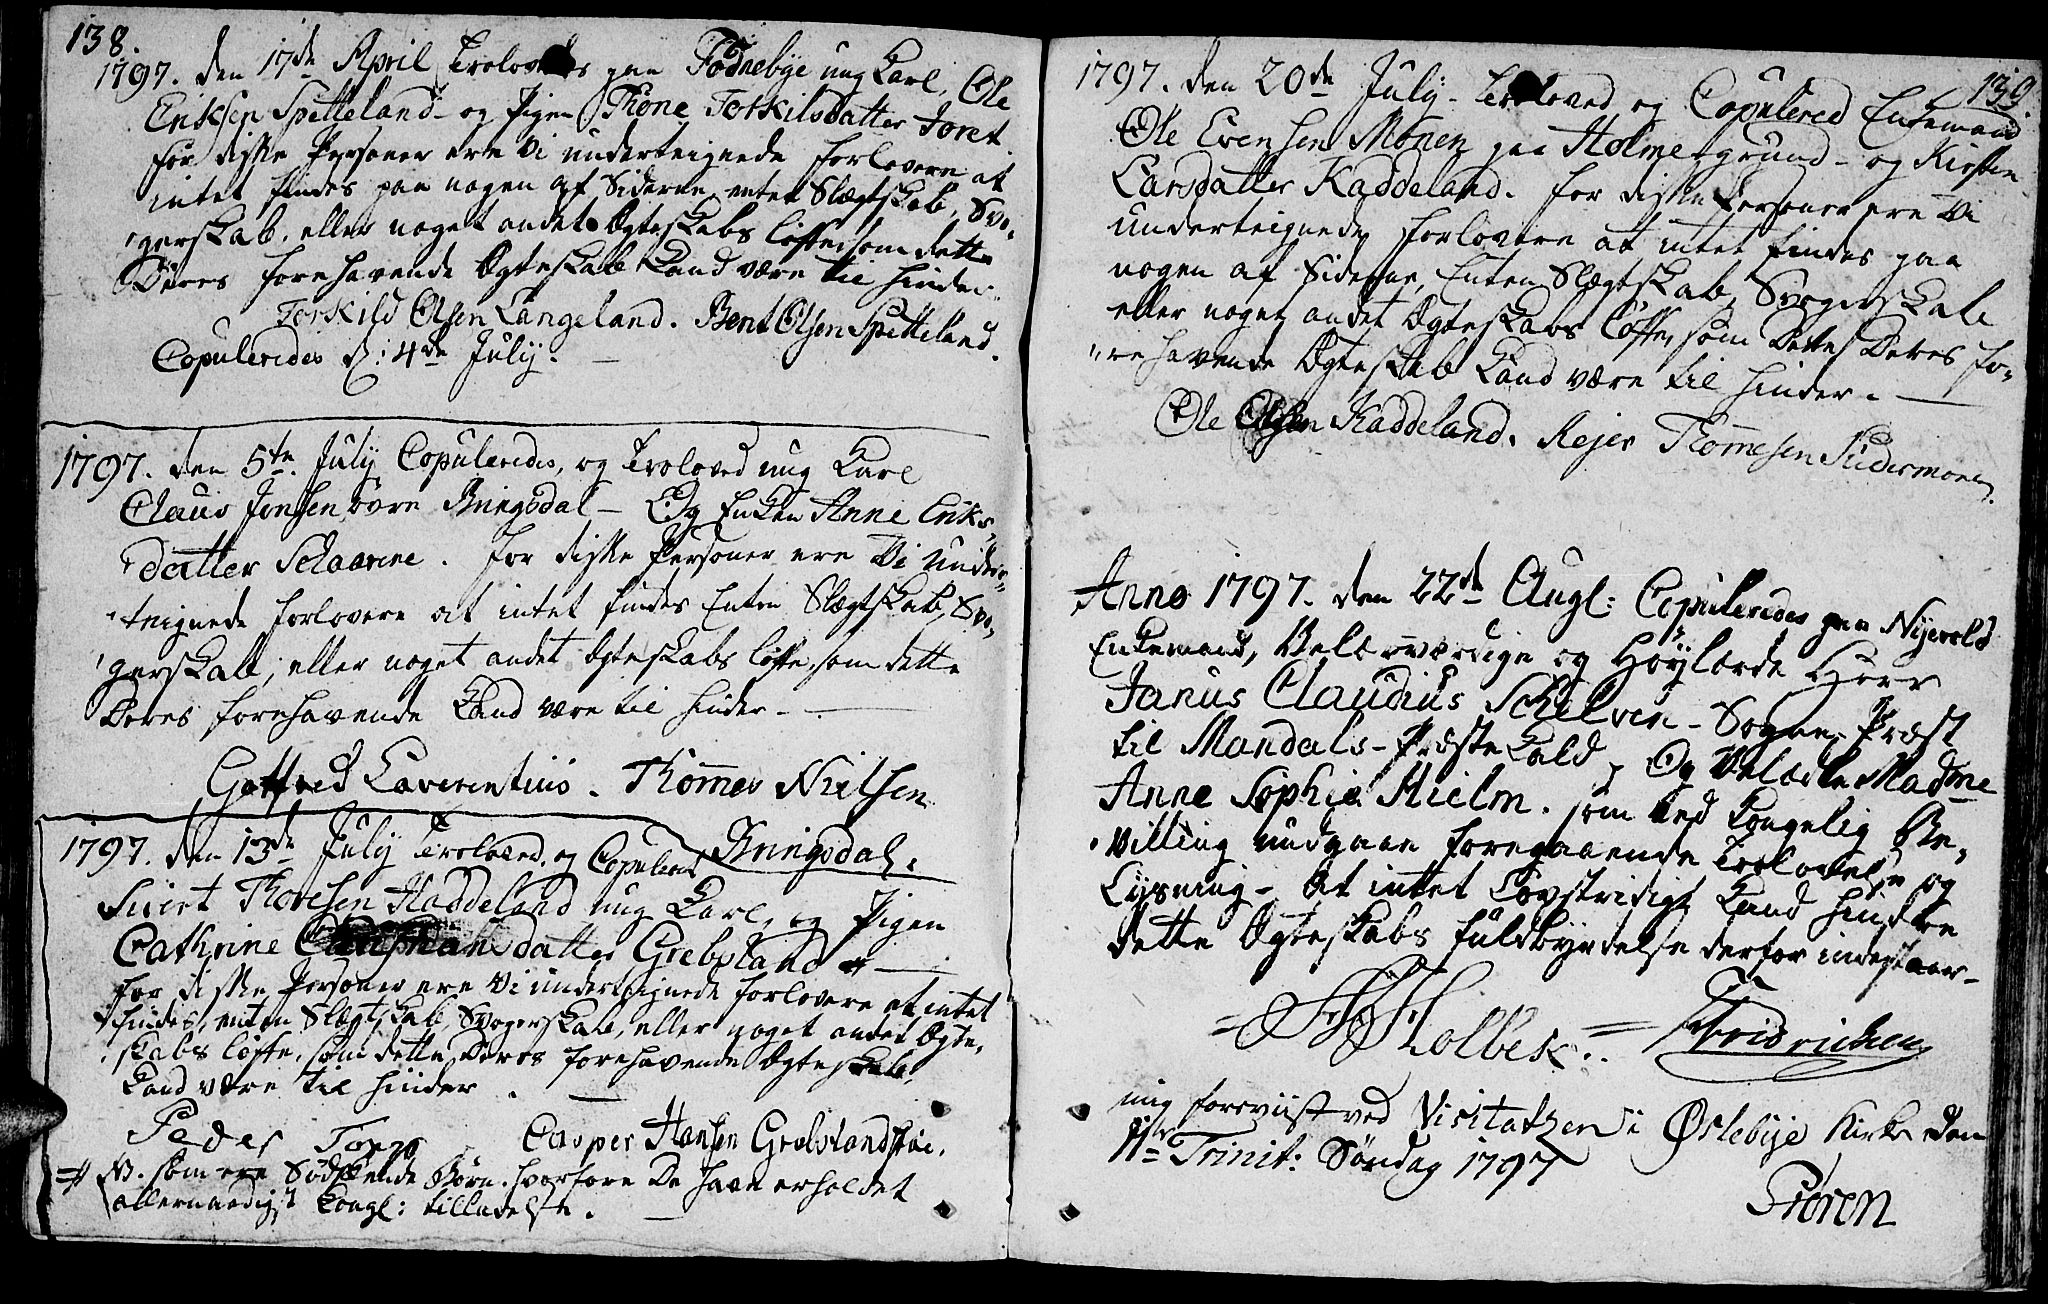 138.
1797. den 17de April Trolovedes paa Födnebye ung Karl, Ole
Eriksen Spetteland - og Pigen Thone Torkilsdatter Foret
for diske Personer ere Vi underteignede forlovere at
intet findes paa nogen af Siderne, enten Slægtskab, Svo-
gerskab, eller noget andet Ægteskabs löffte, som dette
Deres forehavende Ægteskab Kand være til hinder.
Torkild Olsen Langeland. Bent Olsen Spetteland.
Copuleredes d: 4de July. -
1797. den 5te July Copuleredes, og Troloved ung Karl
Claus Jensen Bringsdal - Og Enken Anne Eriks-
datter . For diske Personer ere Vi under-
teignede forlovere at intet findes Enten Slægtskab, Svo-
gerskab, eller noget andet Ægteskabs löfte, som dette
Deres forehavende Kand være til hinder -
Gottfred Laverentius. Thommes Nielsen
Bringsdal.
1797. den 13de July Troloved, og Copulered
Sivert Thorsen Haddeland ung Karl, og Pigen
Cathrine datter Grebstand #
for diske Personer ere Vi underteignede forlovere at intet
findes, enten Slægtskab, Svogerskab, eller noget andet Ægte-
skabs löfte, som dette Deres forehavende Ægteskab,
Kand være til hinder.
Peder Casper Hansen Grebstand
# NB. som ere Södskende Börn. hvorfore De have erholdet
allernaadigst Kongl: tilladelse.
139
1797. den 20de July - Troloved og Copulered Enkemand
Ole Evensen Monen paa Holme grund - og Kirsten
Larsdatter Kaddeland. for diske Personer ere Vi
underteignede forlovere at intet findes paa
nogen af Siderne, Enten Slægtskab, Svogerskab
eller noget andet Ægteskabs Löffte, som Dette Deres fo-
rehavende Ægteskab Kand være til hinder. -
Ole Olsen Kaddeland. Rejer Thommesen Sudermonen.
Anno 1797. den 22de Augl: Copuleredes paa Nijevold
Enkemand, Velærværdige og Höylærde Herr
Janus Claudius Schelven - Sogne Præst
til Mandals - Præste Kald, Og Velædle Madme
Anne Sophie Hielm. som ved Kongelig Be-
villing undgaar foregaaende Trolovelse og
Lysning - At intet Lovstridigt Kand hindre
dette Ægteskabs fuldbyrdelse derfor indestaar -
= Holbek.. = Fridrichsen
mig foreviist ved Visitatzen i Öslebye Kirke den
11te Trinit: Söndag 1797